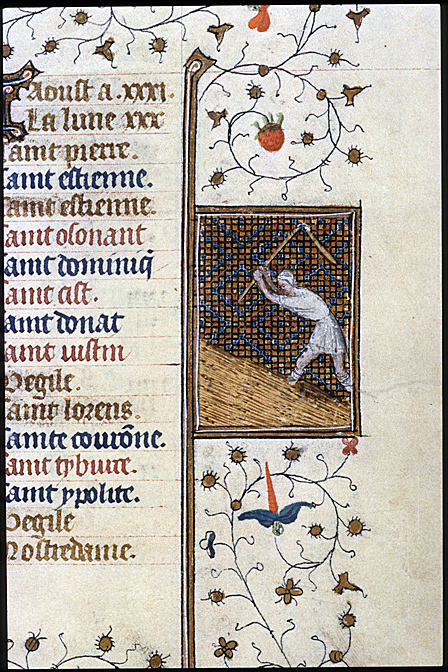 Aoust a .xxxi.
La lune xxx
Saint pierre.
Saint estienne.
Saint estienne.
Saint osouant
Saint dominiq̃
Saint sist.
Saint donat
Saint iustin
Vegile.
Saint lorens.
Sainte courõne.
Saint tyburce.
Saint ypolite.
Vegile
Nostredame.